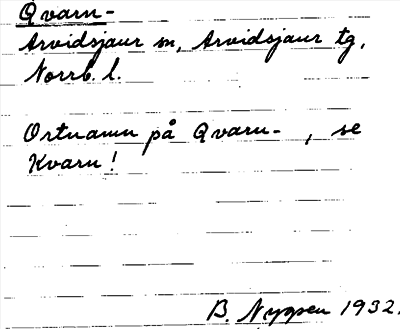 Qvarn-
Arvidsjaur sn, Arvidsjaur tg,
Norrb. l.
Ortnamn på Qvarn- , se
Kvarn!
B. Nyman 1932.